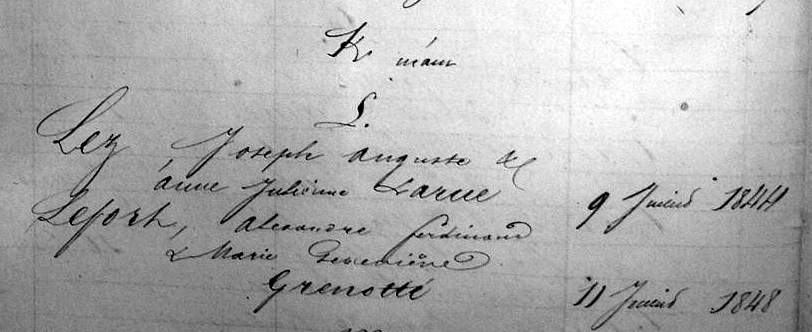 K néant
L.
Lez Joseph Auguste &
Anne Julienne Larue 9 Juillet 1844
Lefort, Alexandre Ferdinand
& Marie Geneviève
Grenotté 11 Juillet 1848